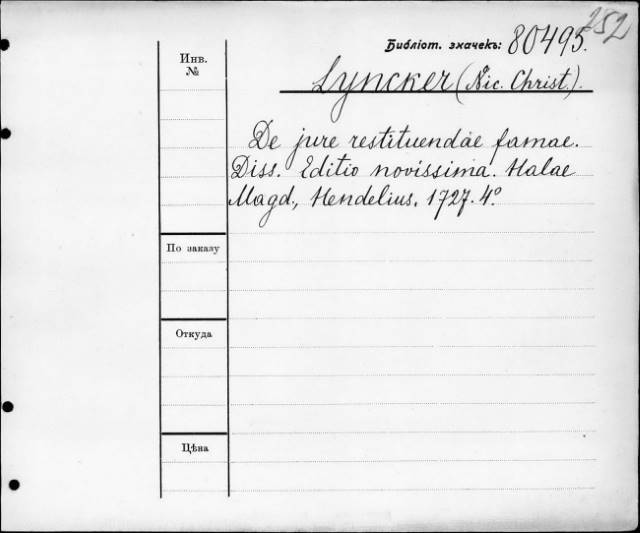 252
Библіот. значекъ: 80495.
Инв. №
Lyncker (Nic. Christ.).
De jure restituendae famae.
Diss. Editio novissima. Halae
Magd., Hendelius, 1727. 4°
По заказу
Откуда
Цѣна